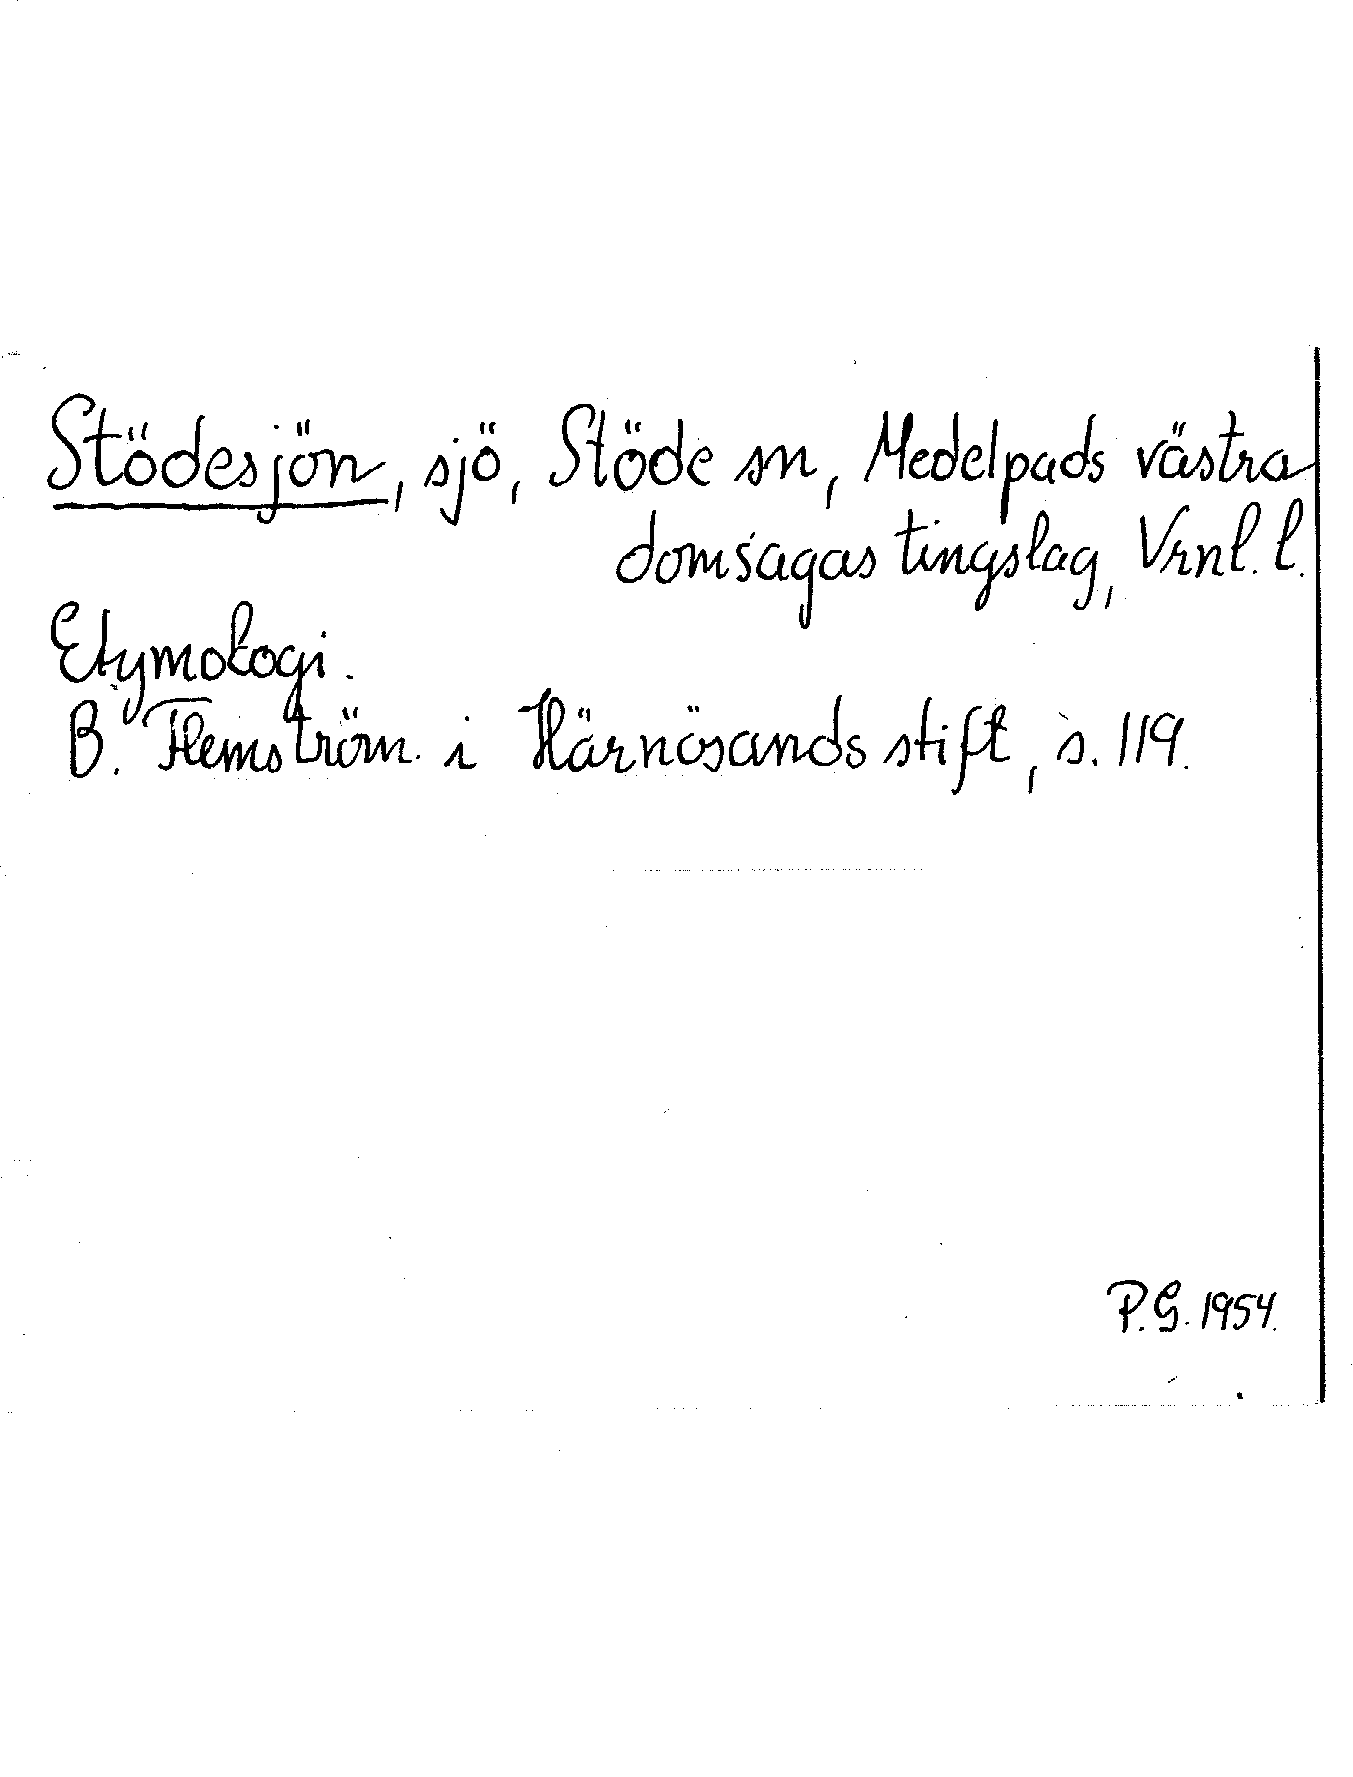 Stödesjön, sjö, Stöde sn, Medelpads västra
domsagas tingslag, Vrnl. l.
Etymologi.
B. Flemström i Härnösands stift, s. 119.
P.G. 1954.